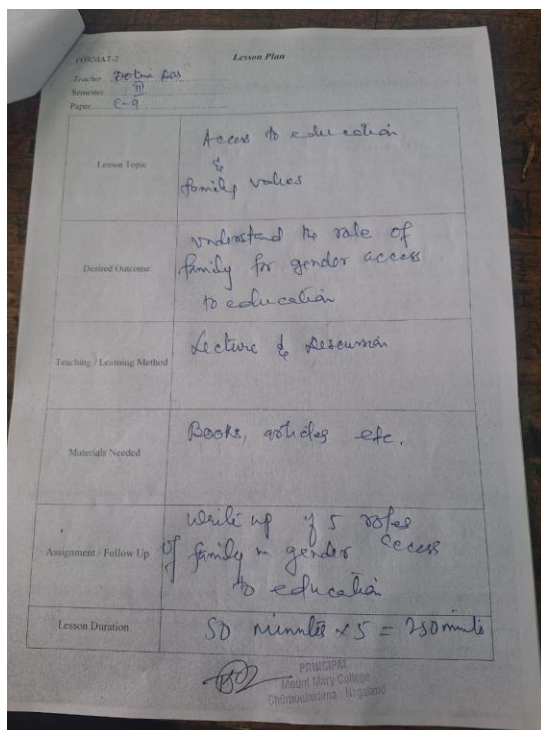 FORMAT-2
Lesson Plan
Teacher
Semester III
Paper C-9
Lesson Topic
Access to education
&
family values
Desired Outcome
understand the role of
family for gender access
to education
Teaching / Learning Method
Lecture & Discussion
Materials Needed
Books, articles etc.
Assignment / Follow Up
Write up of 5 roles
of family in gender access
to education
Lesson Duration
50 minutes x 5 = 250 minutes
PRINCIPAL
Mount Mary College
Chumoukedima : Nagaland